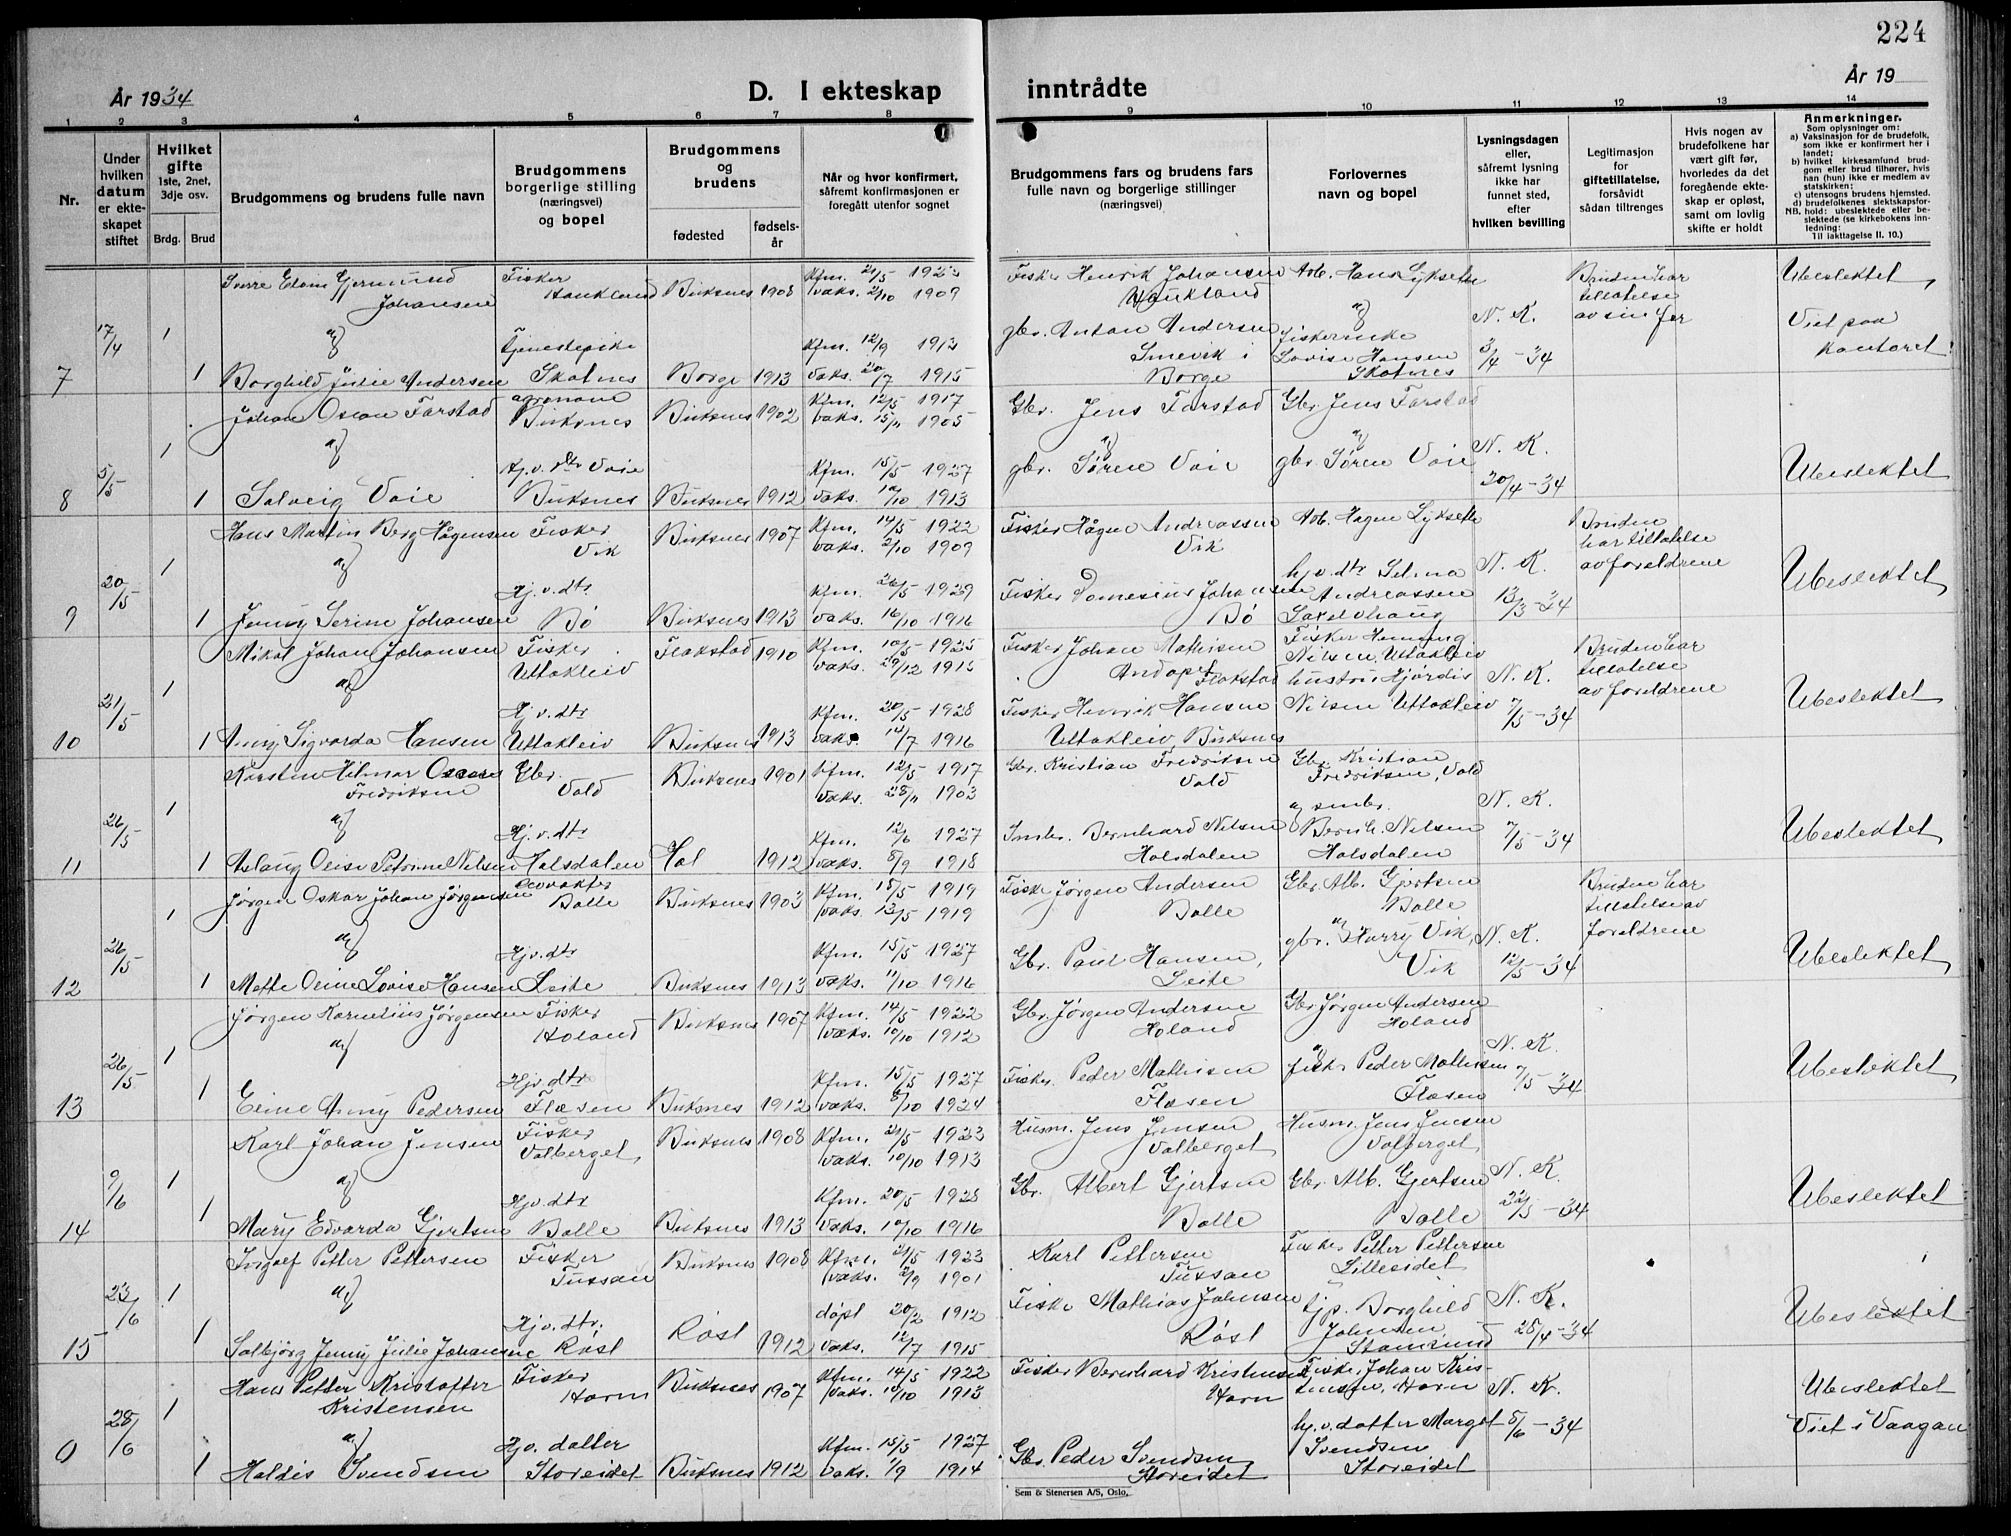 224
År 1934
D. I ekteskap inntrådte
År 19
1 2 3 4 5 6 7 8 9 10 11 12 13 14
Nr.
Under hvilken datum er ekteskapet stiftet
Hvilket gifte 1ste, 2net, 3dje osv.
Brdg. Brud
Brudgommens og brudens fulle navn
Brudgommens borgerlige stilling (næringsvei) og bopel
Brudgommens og brudens
fødested
fødselsår
Når og hvor konfirmert, såfremt konfirmasjonen er foregått utenfor sognet
Brudgommens fars og brudens fars fulle navn og borgerlige stillinger (næringsvei)
Forlovernes navn og bopel
Lysningsdagen eller, såfremt lysning ikke har funnet sted, efter hvilken bevilling
Legitimasjon for giftetillatelse, forsåvidt sådan tiltrenges
Hvis nogen av brudefolkene har vært gift før, hvorledes da det foregående ekteskap er opløst, samt om lovlig skifte er holdt
Anmerkninger.
Som oplysninger om:
a) Vaksinasjon for de brudefolk, som ikke er konfirmert her i landet;
b) hvilket kirkesamfund brudgom eller brud tilhører, hvis han (hun) ikke er medlem av statskirken;
c) utensogns brudens hjemsted.
d) brudefolkenes slektskapsforhold: ubeslektede eller beslektede (se kirkebokens innledning: Til iakttagelse II. 10.)
NB.
7 17/4 1 Johansen Fisker Haukland Buksnes 1908 Kfm. 21/5 vaks. 2/10 1909 Fisker Henrik Johansen Haukland Arb. Hans Lyksette
og
1 Borghild Julie Andersen Tjenestepike Skotnes Borge 1913 Kfm. 12/9 1913 vaks. 20/7 1915 gbr. Anton Andersen Smevik i Borge fiskerenke Lovise Hansen Skotnes N. K. 3/4 - 34 Bruden har tillatelse av sin far Ubeslektet, Viet paa kontoret
8 5/5 1 Johan Oscar Farstad agronom Buksnes Buksnes 1902 Kfm. 12/5 1917 vaks. 15/11 1905 Gbr. Jens Farstad Gbr. Jens Farstad
og
1 Solveig Voie Hj. v. dtr Voie Buksnes Buksnes 1912 Kfm. 15/5 1927 vaks. 10/10 1913 gbr. Søren Voie gbr. Søren Voie N. K. 20/4 - 34 Ubeslektet
9 20/5 1 Hans Martin Berg Hågensen Fisker Vik Buksnes 1907 Kfm. 14/5 1922 vaks. 2/10 1909 Fisker Hågen Andreassen Vik Arb. Hagen Lyksette
og
1 Jenny Serine Johansen Hj. v. dtr Bø Buksnes 1913 Kfm. 26/5 1929 vaks. 16/10 1916 Fisker Johansen Bø hj. v. dtr Selma Andreassen N. K. 13/3 - 34 Bruden har tillatelse av foreldrene Ubeslektet
10 21/5 1 Mikal Johan Johansen Fisker Uttakleiv Flakstad 1910 Kfm. 10/5 1925 vaks. 29/12 1915 Fisker Johan Mathisen Andopet Flakstad Fisker Henning Nilsen, Uttakleiv
og
1 Anny Sigvarda Hansen Hj. v. dtr Uttakleiv Buksnes 1913 Kfm. 20/5 1928 vaks. 14/7 1916 Fisker Henrik Hansen Uttakleiv, Buksnes hustru Hjørdis Nilsen Uttakleiv N. K. 7/5 - 34 Bruden har tillatelse av foreldrene Ubeslektet
11 26/5 1 Karsten Hilmar Oscar Fredriksen Gbr. Vold Buksnes 1901 Kfm. 12/5 1917 vaks. 28/11 1903 Gbr. Kristian Fredriksen Vold Gbr. Kristian Fredriksen, Vold
og
1 Aslaug Petrine Nilsen Hj. v. dtr Holsdalen Hol 1912 Kfm. 12/6 1927 vaks. 5/9 1918 Smbr. Bernhard Nilsen Holsdalen og smbr. Bernh. Nilsen Holsdalen N. K. 7/5 - 34 Ubeslektet
12 26/5 1 Jørgen Oskar Johan Jørgensen Balle Buksnes 1903 Kfm. 18/5 1919 vaks. 13/5 1919 Fiske Jørgen Andersen Balle Gbr. Alb. Gjertsen Balle
og
1 Mette Oline Lovise Hansen Hj. v. dtr Leite Buksnes 1913 Kfm. 15/5 1927 vaks. 11/10 1916 Gbr. Paul Hansen, Leite gbr. Harry Vik, Vik N. K. 12/5 - 34 Bruden har tillatelse av foreldrene Ubeslektet
13 26/5 1 Jørgen Kornelius Jørgensen Fisker Holand Buksnes 1907 Kfm. 14/5 1922 vaks. 10/10 1912 Gbr. Jørgen Andersen Holand Gbr. Jørgen Andersen Holand
og
1 Anny Pedersen Hjv. dtr Flæsen Buksnes 1912 Kfm. 15/5 1927 vaks. 8/10 1924 Fisker Peder Mathisen Flæsen Fisk. Peder Mathisen Flæsen N. K. 7/5 - 34 Ubeslektet
14 9/6 1 Karl Johan Jensen Fisker Valberget Buksnes 1908 Kfm. 21/5 1923 vaks. 10/10 1913 Husm. Jens Jensen Valberget Husm. Jens Jensen Valberget
og
1 Mary Edvarda Gjertsen Hjv. dtr Balle Buksnes 1913 Kfm. 20/5 1928 vaks. 10/10 1916 Gbr. Albert Gjertsen Balle Gbr. Alb. Gjertsen Balle N. K. 22/5 - 34 Ubeslektet
15 23/6 1 Ingolf Petter Pettersen Fisker Tussan Buksnes 1908 Kfm. 21/5 1923 vaks. 2/9 1901 Karl Pettersen Tussan Fisker Petter Pettersen Lilleeidet
og
1 Solbjørg Jenny Julie Johansen Hj. v. dtr. Røst Røst 1912 døpt 20/2 1912 vaks. 12/7 1915 Fiske Mathias Johnsen Røst tjp. Borghild Johnsen, Stamsund N. K. 28/4 - 34 Ubeslektet
0 28/6 1 Hans Petter Kristoffer Kristensen Fisker Horn Buksnes 1907 Kfm. 14/5 1922 vaks. 10/10 1913 Fisker Bernhard Kristensen Horn Fiske. Johan Kristensen, Horn
og
1 Haldis Svendsen Hjv. datter Storeidet Buksnes 1912 Kfm. 15/5 1927 vaks. 1/9 1914 Gbr. Peder Svendsen Storeidet hj. v. datter Margot Svendsen Storeidet N. K. 5/6 - 34 Ubeslektet Viet i Vaagan
Sem & Stenersen A/S, Oslo.